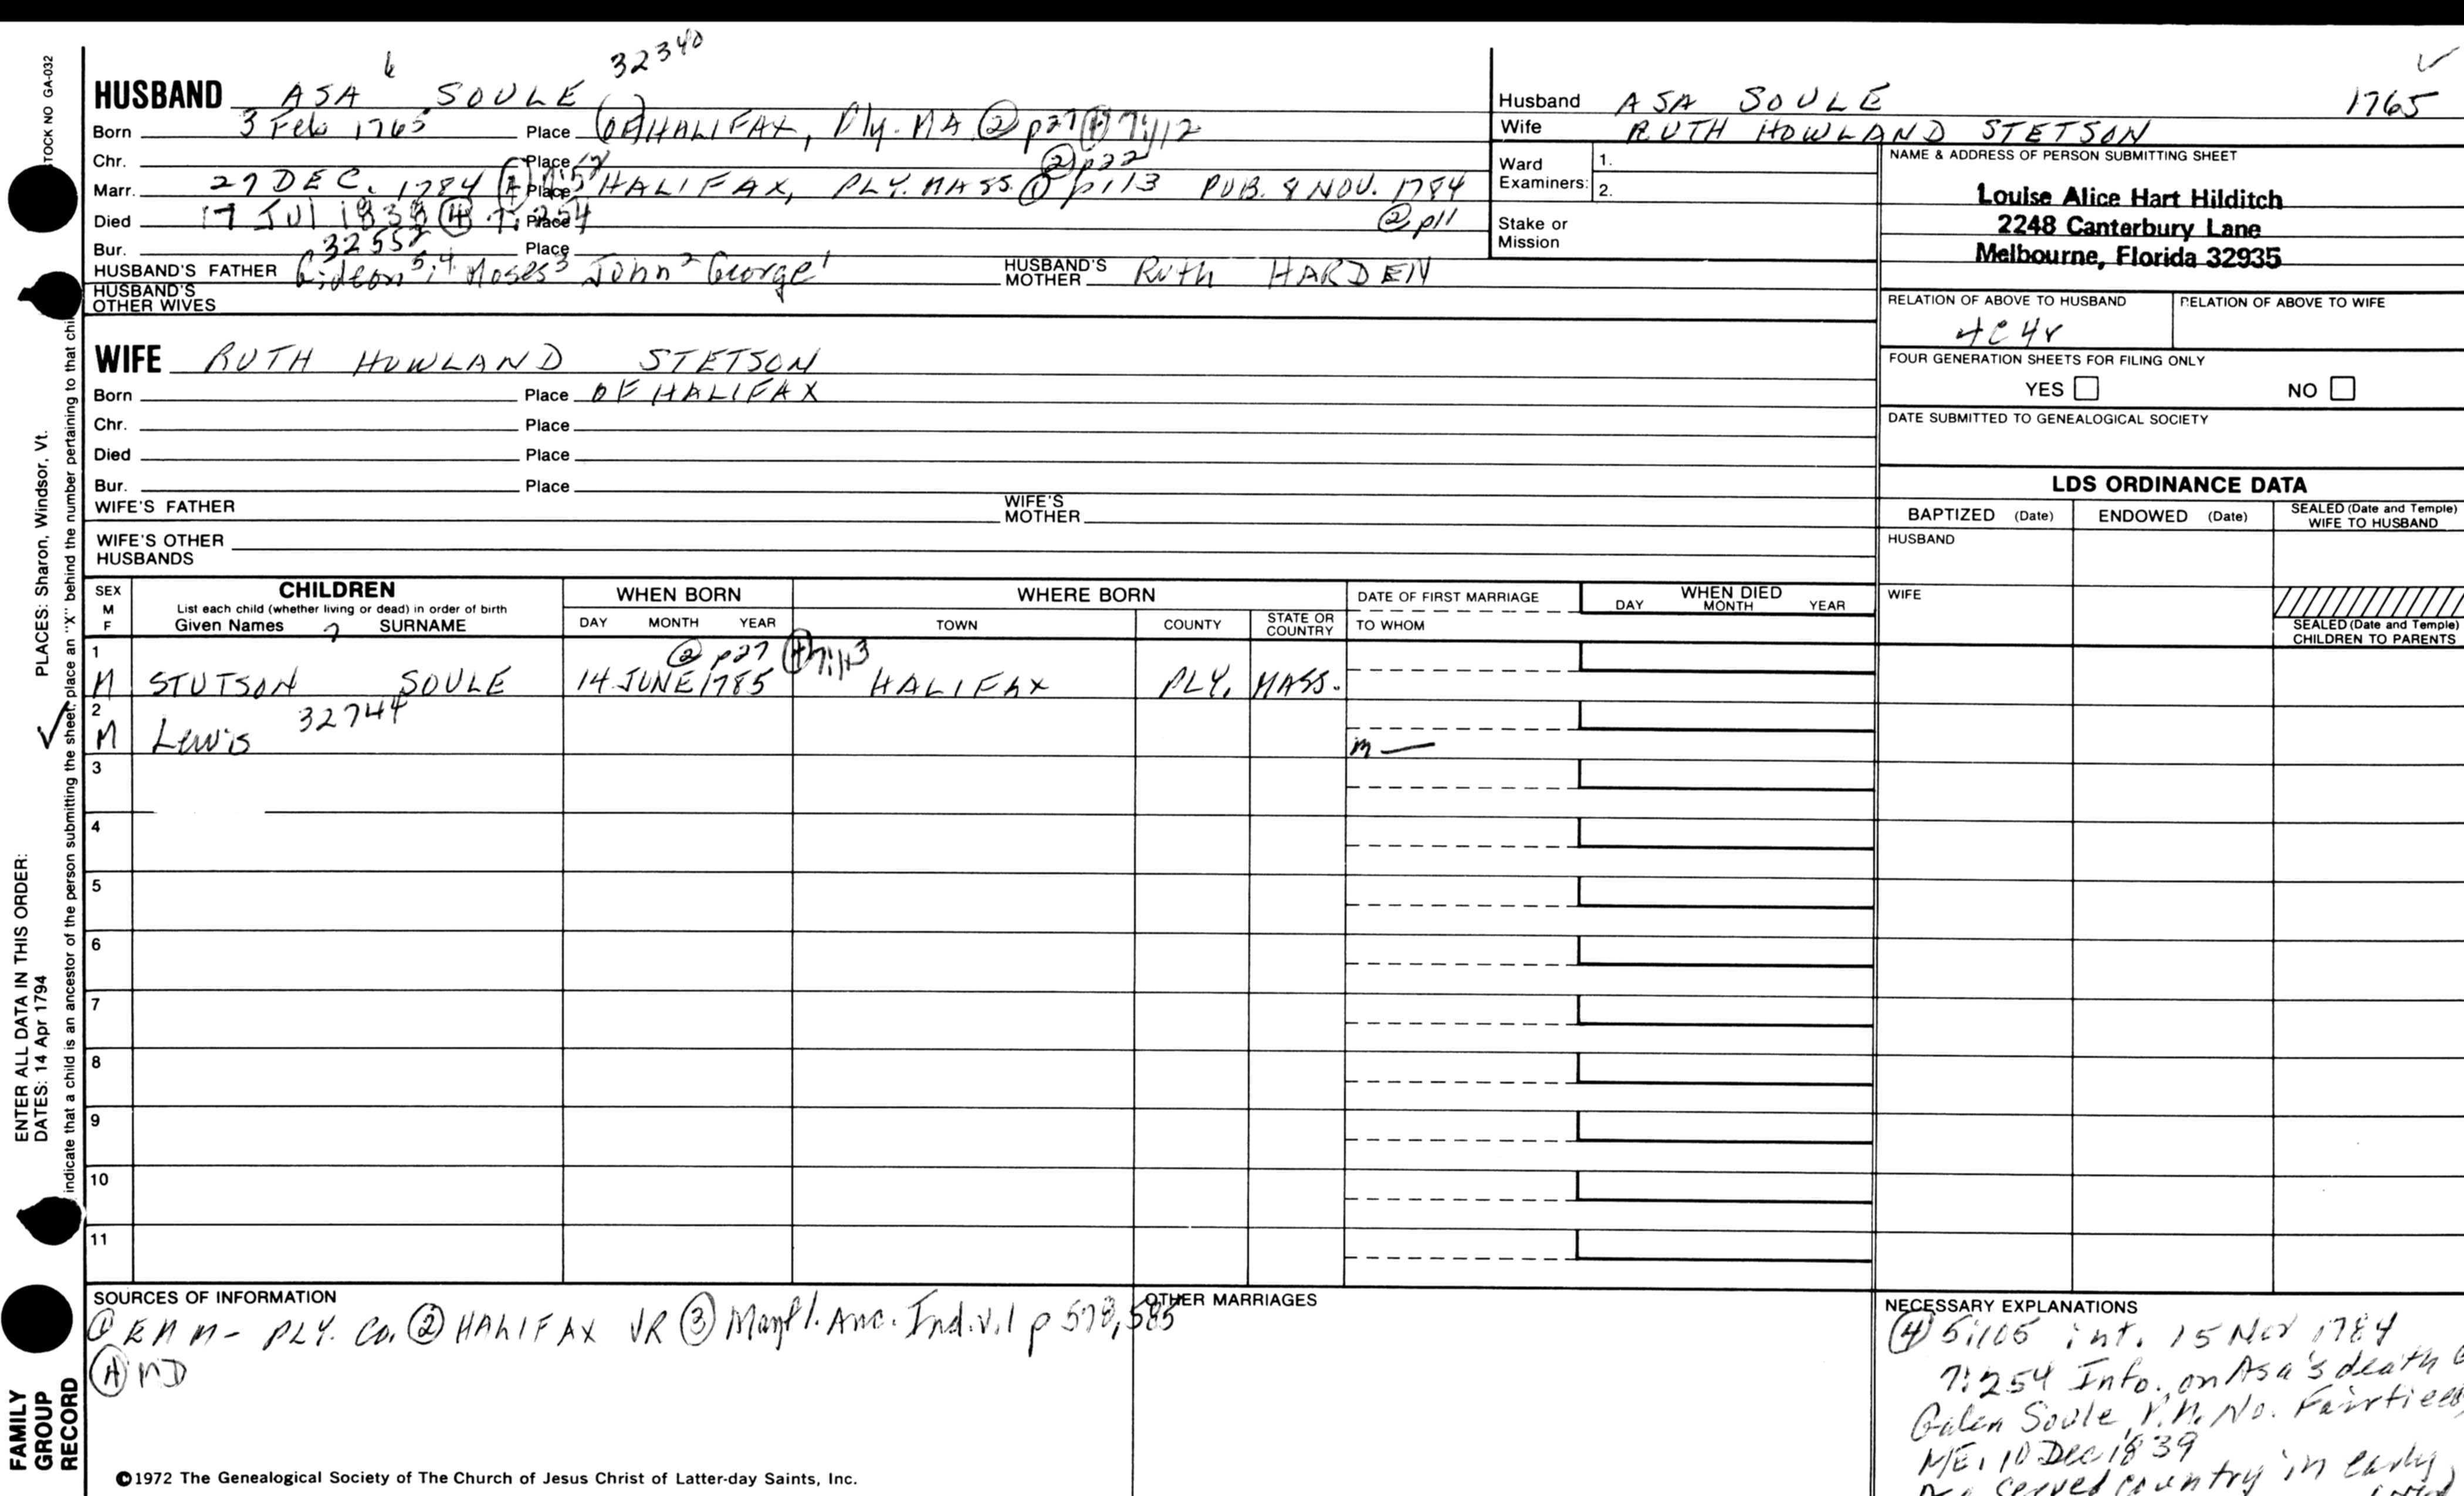 32340
HUSBAND ASA 6 SOULE
Born 3 Feb 1765 Place (OF) HALIFAX, Ply. MA ② p27 ④ 7:112
Chr. Place
② p22
Marr. 27 DEC. 1784 ④ Place HALIFAX, PLY. MASS. ① p113 PUB. 8 NOV. 1784
Died 17 Jul 1839 ④ 7:254 Place
② p11
Bur. Place
HUSBAND'S FATHER Gideon 5,4 Moses 3 John 2 George 1 HUSBAND'S MOTHER Ruth HARDEN
HUSBAND'S OTHER WIVES
Husband ASA SOULE 1765
Wife RUTH HOWLAND STETSON
Ward Examiners: 1.
2.
Stake or Mission
NAME & ADDRESS OF PERSON SUBMITTING SHEET
Louise Alice Hart Hilditch
2248 Canterbury Lane
Melbourne, Florida 32935
RELATION OF ABOVE TO HUSBAND RELATION OF ABOVE TO WIFE
4C4r
FOUR GENERATION SHEETS FOR FILING ONLY
YES NO
DATE SUBMITTED TO GENEALOGICAL SOCIETY
WIFE RUTH HOWLAND STETSON
Born Place OF HALIFAX
Chr. Place
Died Place
Bur. Place
WIFE'S FATHER WIFE'S MOTHER
WIFE'S OTHER HUSBANDS
LDS ORDINANCE DATA
BAPTIZED (Date) ENDOWED (Date) SEALED (Date and Temple) WIFE TO HUSBAND
HUSBAND
WIFE
SEALED (Date and Temple) CHILDREN TO PARENTS
SEX M F CHILDREN WHEN BORN WHERE BORN DATE OF FIRST MARRIAGE WHEN DIED
List each child (whether living or dead) in order of birth
Given Names 7 SURNAME DAY MONTH YEAR TOWN COUNTY STATE OR COUNTRY TO WHOM DAY MONTH YEAR
1 ② p27 ④ 7:113
M STUTSON SOULE 14 JUNE 1785 HALIFAX PLY. MASS.
2 32744
M Lewis m —
3
4
5
6
7
8
9
10
11
SOURCES OF INFORMATION
① EMM - PLY. Co. ② HALIFAX VR ③ Mayfl. Anc. Ind. v.1 p 578,585
④ MD
OTHER MARRIAGES
NECESSARY EXPLANATIONS
④ 5:105 int. 15 Nov 1784
7:254 Info. on Asa's death
Galen Soule, P.M. No. Fairfield,
ME, 10 Dec 1839
served country in early
©1972 The Genealogical Society of The Church of Jesus Christ of Latter-day Saints, Inc.
STOCK NO GA-032
PLACES: Sharon, Windsor, Vt.
place an "X" behind the number pertaining to that chi
indicate that a child is an ancestor of the person submitting the sheet,
ENTER ALL DATA IN THIS ORDER:
DATES: 14 Apr 1794
FAMILY GROUP RECORD